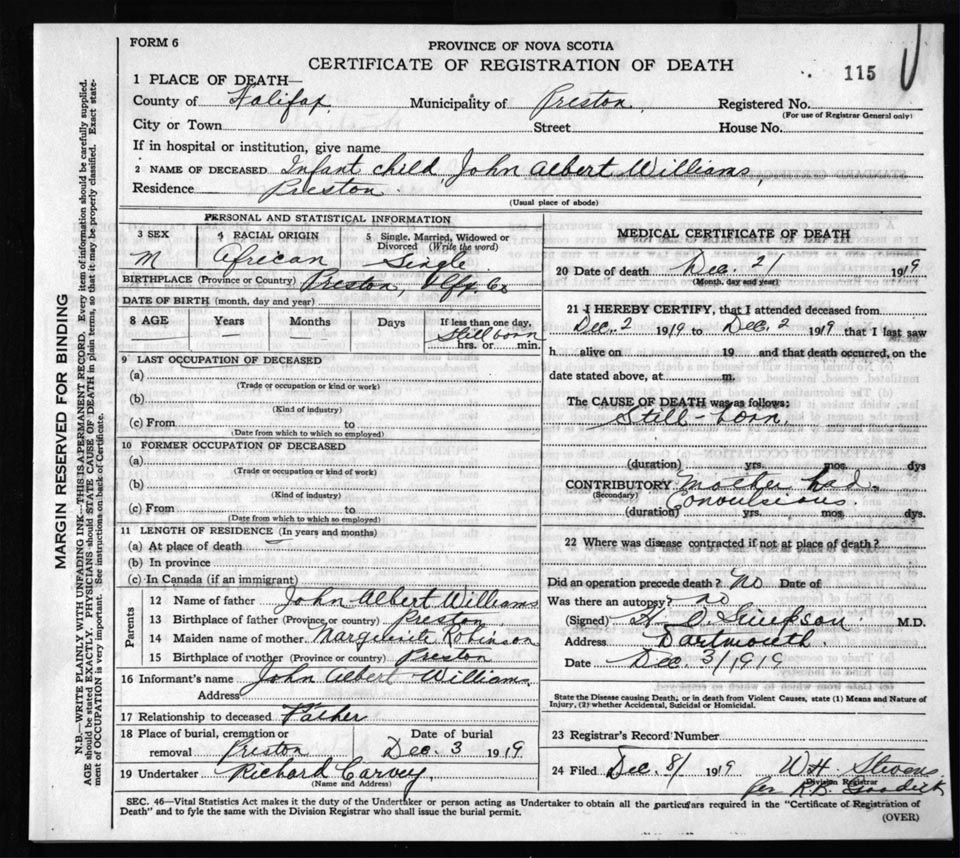 FORM 6
PROVINCE OF NOVA SCOTIA
CERTIFICATE OF REGISTRATION OF DEATH
115
1 PLACE OF DEATH—
County of Halifax Municipality of Preston. Registered No.
(For use of Registrar General only)
City or Town Street House No.
If in hospital or institution, give name
2 NAME OF DECEASED Infant child, John Albert Williams,
Residence Preston.
(Usual place of abode)
PERSONAL AND STATISTICAL INFORMATION
3 SEX 4 RACIAL ORIGIN 5 Single, Married, Widowed or Divorced (Write the word)
M African Single
BIRTHPLACE (Province or Country) Preston, Hfx Co
DATE OF BIRTH (month, day and year)
8 AGE Years Months Days If less than one day,
Still born
hrs. or min.
9 LAST OCCUPATION OF DECEASED
(a)
(Trade or occupation or kind or work)
(b)
(Kind of industry)
(c) From to
(Date from which to which so employed)
10 FORMER OCCUPATION OF DECEASED
(a)
(Trade or occupation or kind of work)
(b)
(Kind of industry)
(c) From to
(Date from which to which so employed)
11 LENGTH OF RESIDENCE (In years and months)
(a) At place of death
(b) In province
(c) In Canada (if an immigrant)
Parents
12 Name of father John Albert Williams
13 Birthplace of father (Province or country) Preston.
14 Maiden name of mother Marguerite Robinson
15 Birthplace of mother (Province or country) Preston
16 Informant's name John Albert Williams
Address
17 Relationship to deceased Father
18 Place of burial, cremation or removal Preston Date of burial Dec. 3 1919
19 Undertaker Richard Carvey,
(Name and Address)
MEDICAL CERTIFICATE OF DEATH
20 Date of death Dec. 2/ 1919
(Month, day and year)
21 I HEREBY CERTIFY, that I attended deceased from
Dec. 2 1919 to Dec. 2 1919 that I last saw
h alive on 19 and that death occurred, on the
date stated above, at m.
The CAUSE OF DEATH was as follows:
Still-born.
(duration) yrs. mos. dys
CONTRIBUTORY Mother had
(Secondary) Convulsions.
(duration) yrs. mos. dys.
22 Where was disease contracted if not at place of death?
Did an operation precede death? No Date of
Was there an autopsy? no
(Signed) H. O. Simpson M.D.
Address Dartmouth
Date Dec. 3/1919
State the Disease causing Death, or in death from Violent Causes, state (1) Means and Nature of
Injury, (2) whether Accidental, Suicidal or Homicidal.
23 Registrar's Record Number
24 Filed Dec. 8/ 1919 W H Stevens
Division Registrar
per R.B.
SEC. 46—Vital Statistics Act makes it the duty of the Undertaker or person acting as Undertaker to obtain all the particulars required in the "Certificate of Registration of
Death" and to fyle the same with the Division Registrar who shall issue the burial permit.
(OVER)
MARGIN RESERVED FOR BINDING
N.B.—WRITE PLAINLY WITH UNFADING INK—THIS IS A PERMANENT RECORD. Every item of information should be carefully supplied.
AGE should be stated EXACTLY. PHYSICIANS should STATE CAUSE OF DEATH in plain terms, so that it may be properly classified. Exact state-
ment of OCCUPATION is very important. See instructions on back of Certificate.